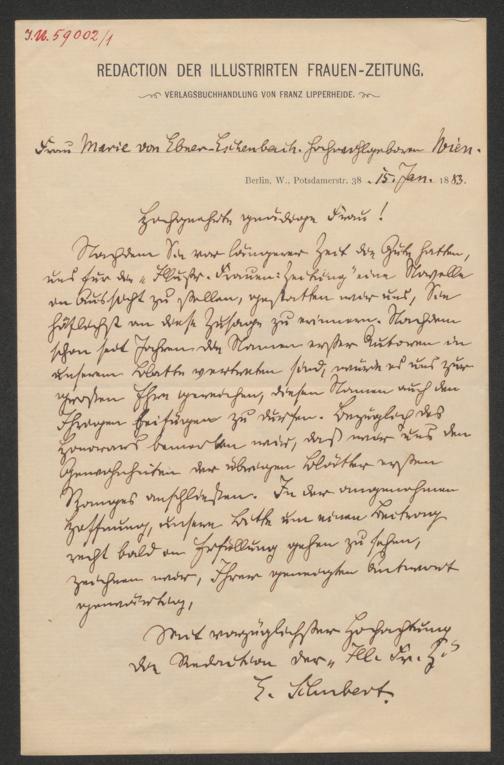 I.N. 59002/1
REDACTION DER ILLUSTRIRTEN FRAUEN-ZEITUNG.
VERLAGSBUCHHANDLUNG VON FRANZ LIPPERHEIDE.
Frau Marie von Ebner-Eschenbach. Hochwohlgeboren Wien.
Berlin, W., Potsdamerstr. 38. 15. Jan. 1883.
Hochgeehrte gnädige Frau!
Nachdem Sie vor längerer Zeit die Güte hatten,
uns für die „Illustr. Frauen-Zeitung" eine Novelle
in Aussicht zu stellen, gestatten wir uns, Sie
höflichst an diese Zusage zu erinnern. Nachdem
schon seit Jahren die Namen erster Autoren in
unserem Blatte vertreten sind, würde es uns zur
großen Ehre gereichen, diesen Namen auch den
Ihrigen beifügen zu dürfen. Bezüglich des
Honorars bemerken wir, daß wir uns den
Gewohnheiten der übrigen Blätter ersten
Ranges anschließen. In der angenehmen
Hoffnung, unsere Bitte um einen Beitrag
recht bald in Erfüllung gehen zu sehen,
zeichnen wir, Ihrer geneigten Antwort
gewärtig,
Mit vorzüglichster Hochachtung
die Redaction der „Ill. Fr. Z."
Schubert.